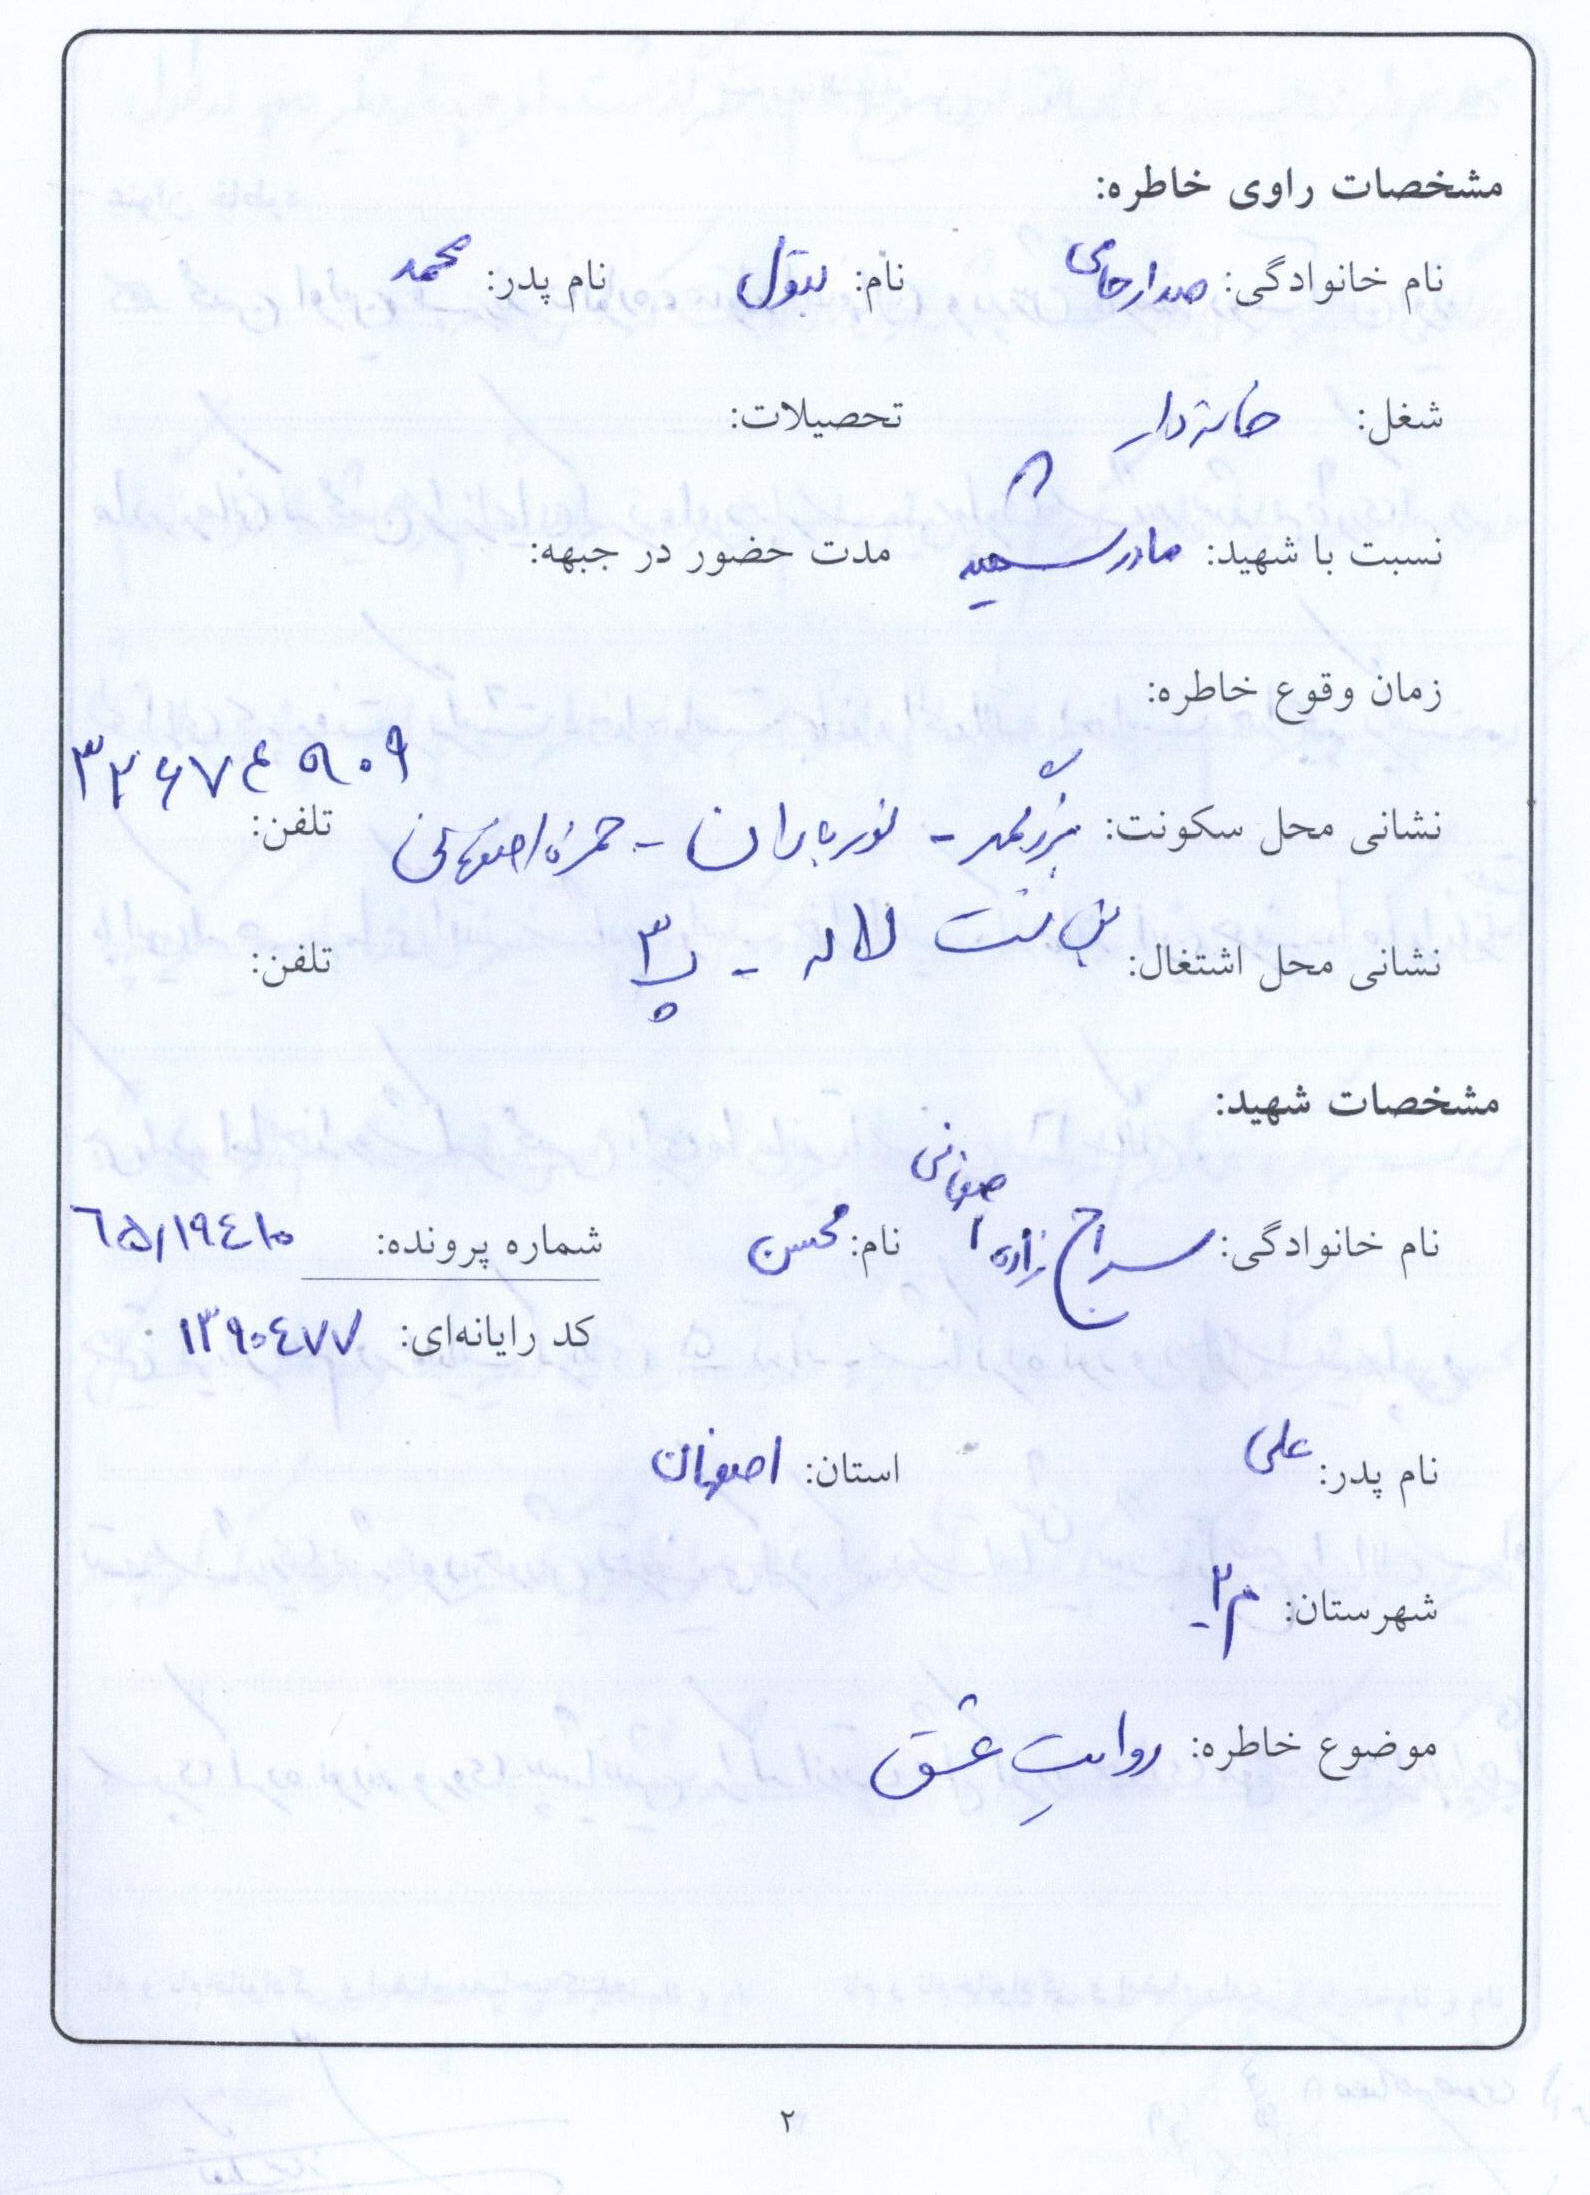 مشخصات راوی خاطره:
نام خانوادگی: صدارحامی نام: بتول نام پدر: محمد
شغل: خانه‌دار تحصیلات:
نسبت با شهید: مادر شهید مدت حضور در جبهه:
زمان وقوع خاطره:
نشانی محل سکونت: بزرگمهر - نورباران - حمزه اصفهانی تلفن: ۳۲۶۷۴۵۰۹
نشانی محل اشتغال: بن بست لاله - پ ۳ تلفن:
مشخصات شهید:
نام خانوادگی: سراج زاده اصفهانی نام: محسن شماره پرونده: ۶۵/۱۹۴۱۰
کد رایانه‌ای: ۱۳۹۰۴۷۷
نام پدر: علی استان: اصفهان
شهرستان: م۲
موضوع خاطره: روایتِ عشق
۲